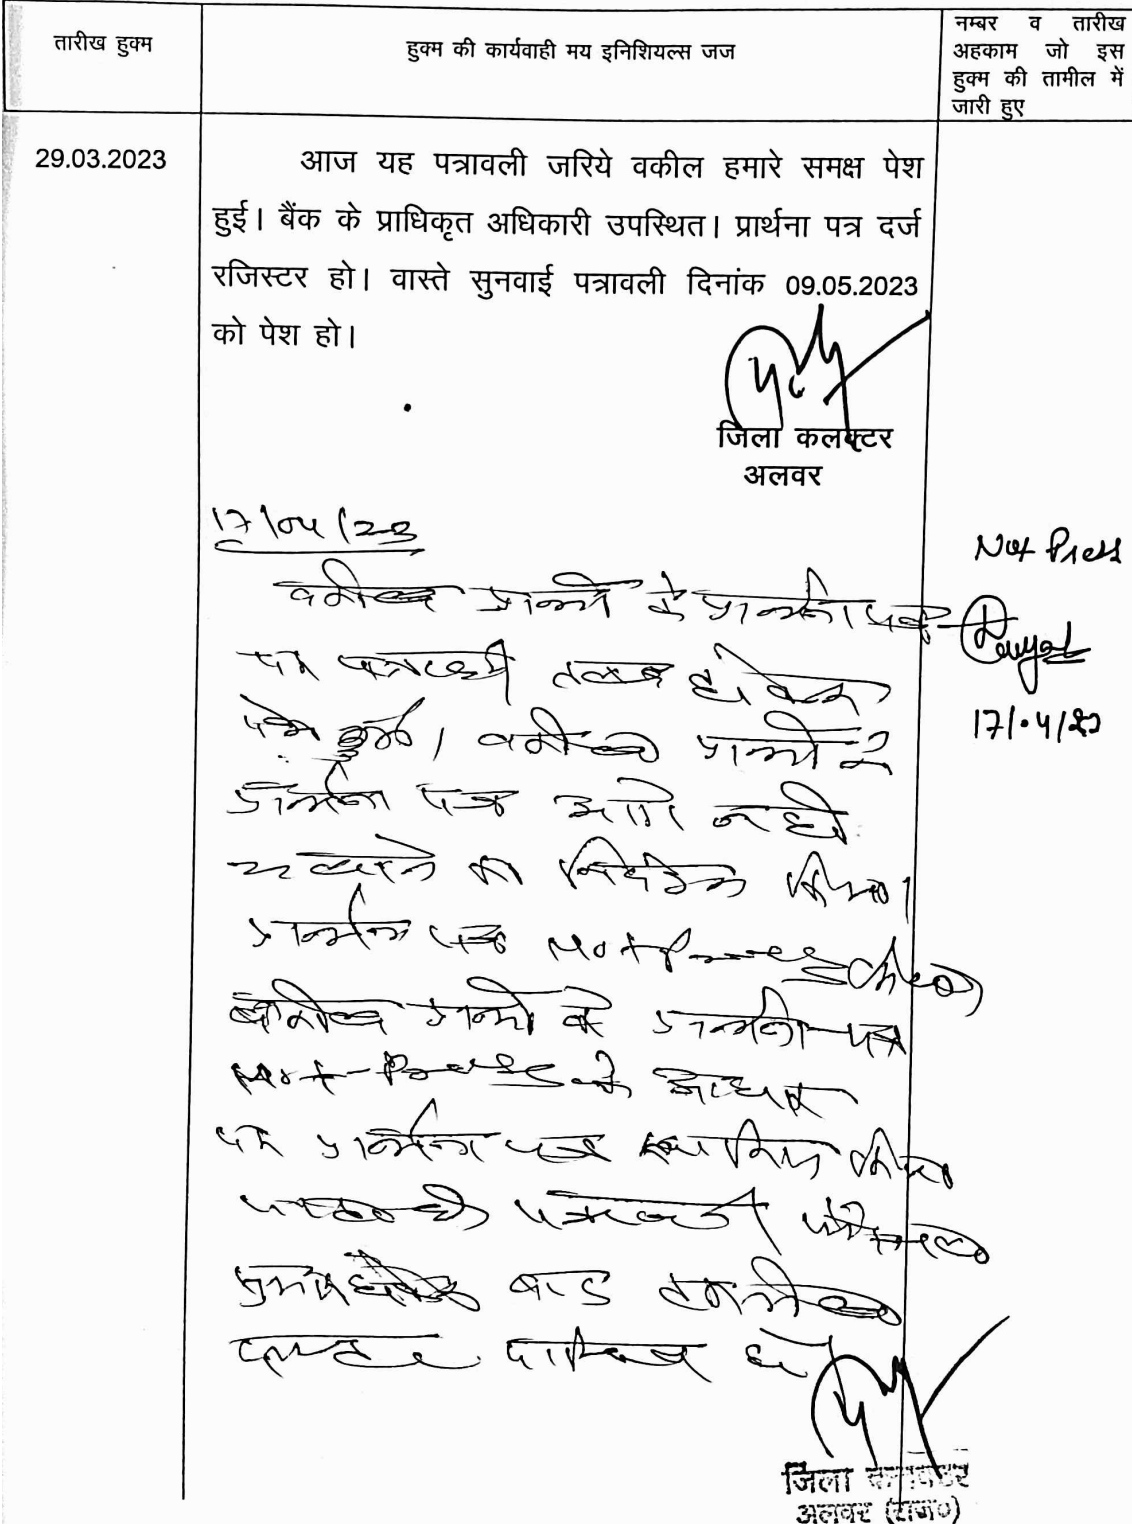 तारीख हुक्म
हुक्म की कार्यवाही मय इनिशियल्स जज
नम्बर व तारीख
अहकाम जो इस
हुक्म की तामील में
जारी हुए
29.03.2023
आज यह पत्रावली जरिये वकील हमारे समक्ष पेश
हुई। बैंक के प्राधिकृत अधिकारी उपस्थित। प्रार्थना पत्र दर्ज
रजिस्टर हो। वास्ते सुनवाई पत्रावली दिनांक 09.05.2023
को पेश हो।
जिला कलक्टर
अलवर
17/04/23
वकील प्रार्थी के प्रार्थना पत्र
पर पत्रावली तलब होकर
पेश हुई। वकील प्रार्थी ने
प्रार्थना पत्र आगे नहीं
चलाने का निवेदन किया।
प्रार्थना पत्र Not Press किया
वकील प्रार्थी के प्रार्थना पत्र
Not-Press के आधार
पर प्रार्थना पत्र खारिज किया
जाता है पत्रावली फैसल
बाद तकमील
दफ्तर दाखिल हो।
Not Press
17/04/23
जिला कलक्टर
अलवर (राज०)